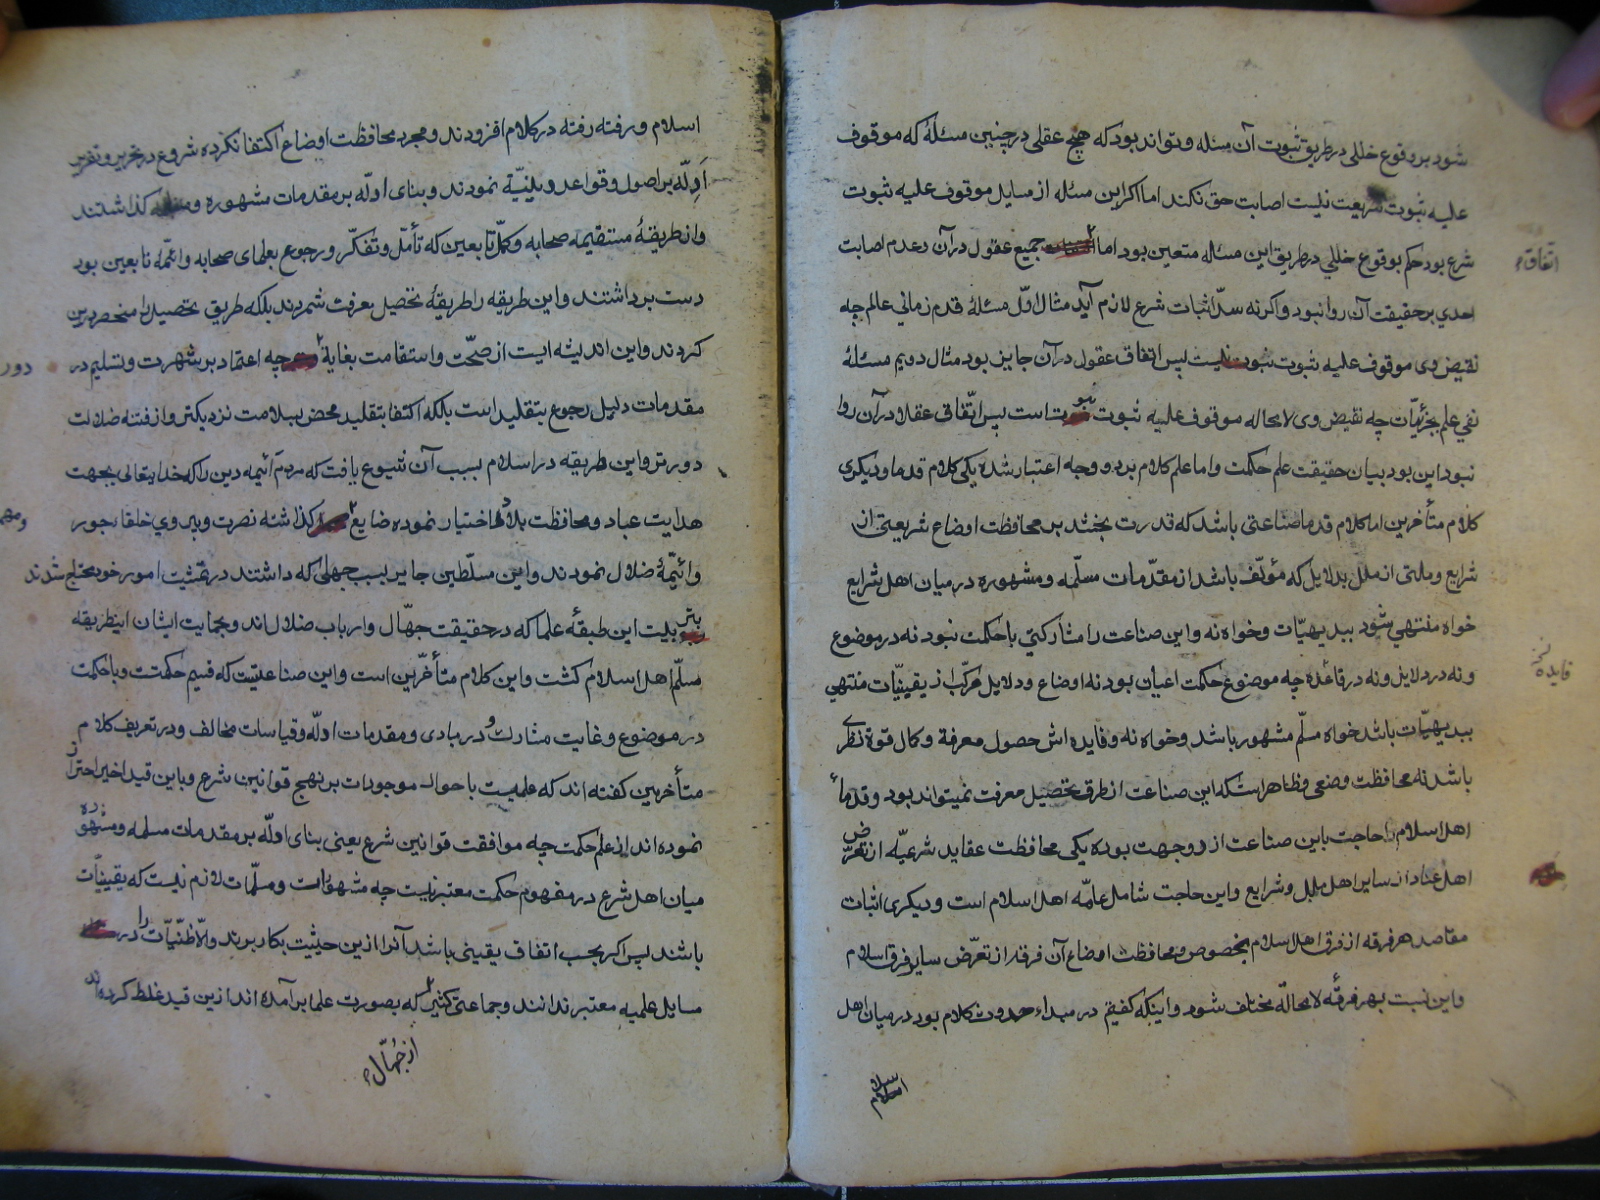 شود بر وقوع خللی در طریق ثبوت آن مسئله و تواند بود که هیچ عقلی در چنین مسئله که موقوف
علیه ثبوت شریعت نیست اصابت حق نکند اما اکر این مسئله از مسایل موقوف علیه ثبوت
شرع بود حکم بوقوع خللي در طریق این مسئله متعین بود اما جمیع عقول در آن و عدم اصابت
اتفاق
احدي بر حقیقت آن روا نبود و اکر نه سدّ اثبات شرع لازم آید مثال اوّل مسئلۀ قدم زماني عالم چه
نقیض وی موقوف علیه ثبوت نبوت نیست پس اتفاق عقول در آن جایز بود مثال دویم مسئلۀ
نفي علم بجزئیّات چه نقیض وی لامحاله موقوف علیه ثبوت نبوت است پس اتّفاق عقلا در آن روا
نبود این بود بیان حقیقت علم حکمت و اما علم کلام بر دو وجه اعتبار شده یکی کلام قدما و دیکری
کلام متأخرین اما کلام قدما صناعتی باشد که قدرت بخشد بر محافظت اوضاع شریعتی از
شرایع و ملتی از ملل بدلایل که مؤلّف باشد از مقدّمات مسلّمه و مشهوره در میان اهل شرایع
خواه منتهي شود ببدیهیّات و خواه نه و این صناعت را مشارکتی با حکمت نبود نه در موضوع
و نه در دلایل و نه در فائده چه موضوع حکمت اعیان بود نه اوضاع و دلایل مرکّب از یقینیّات منتهي
فایده
ببدیهیّات باشد خواه مسلّم مشهور باشد و خواه نه و فایده اش حصول معرفة و کمال قوة نظری
باشد نه محافظت وضعی و ظاهر است که این صناعت از طرق تحصیل معرفت نمیتواند بود و قدمأ
اهل اسلام را حاجت باین صناعت از دو جهت بوده یکی محافظت عقاید شرعیّه از تعرّض
اهل عناد از سایر اهل ملل و شرایع و این حاجت شامل عامّه اهل اسلام است و دیکری اثبات
مقاصد هر فرقه از فرق اهل اسلام بخصوص و محافظت اوضاع آن فرقه از تعرّض سایر فرق اسلام
و این نسبت بهر فرقه لا محالّه مختلف شود و اینکه کفتیم در مبداء حدوث کلام بود در میان اهل
اسلام
اسلام و رفته رفته در کلام افزودند و مجرد محافظت اوضاع اکتفا نکرده شروع در تحریر و تقریر
اَدِلّه بر اصول و قواعد دینیّة نمودند و بنای ادلّه بر مقدمات مشهوره و مسلّمه کذاشتند
و از طریقۀ مستقیمه صحابه و کمّل تابعین که تأمّل و تفکّر و رجوع بعلمای صحابه و ائمّه تابعین بود
دست برداشتند و این طریقه را طریقۀ تحصیل معرفت شمردند بلکه طریق تحصیل را منحصر درین
کردند و این اندیشه ایست از صحّت و استقامت بغایة چه اعتماد بر شهرت و تسلیم در
دور
مقدمات دلیل رجوع بتقلید است بلکه اکتفا بتقلید محض بسلامت نزدیکتر و از فتنه ضلالت
دورتر و این طریقه در اسلام بسبب آن شیوع یافت که مردم ائیمه دین را که خدایتعالی بجهت
هدایت عباد و محافظت بلاد اختیار نموده ضایع کذاشته نصرت و پیروي خلفاء جور
و ائیمّۀ ضلال نمودند و این سلّطین جایر بسبب جهلی که داشتند در تمشیت امور خود محتاج شدند
بتربیت این طبقۀ علما که در حقیقت جهّال و ارباب ضلال اند و بحمایت ایشان این طریقه
مسلّم اهل اسلام کشت و این کلام متأخّرین است و این صناعتیست که قسیم حکمتت و با حکمت
در موضوع و غایت مشارک و در مبادی و مقدمات ادلّه و قیاسات مخالف و در تعریف کلام
متأخرین کفته اند که علمیست باحوال موجودات بر نهج قوانین شرع و باین قید اخیر احتراز
نموده اند از علم حکمت چه موافقت قوانین شرع یعنی بنای ادلّه بر مقدمات مسلمه و مشهوره
میان اهل شرع در مفهوم حکمت معتبر نیست چه مشهورات و مسلّمات لازم نیست که یقینیّات
باشند پس اکر بحسب اتفاق یقینی باشد آنرا ازین حیثیت بکار برند والّا ظنّیّات را در
مسایل علمیه معتبر ندانند و جماعتی کثیر که بصورت علما برآمده اند ازین قید غلط کرده اند
از جُهّال